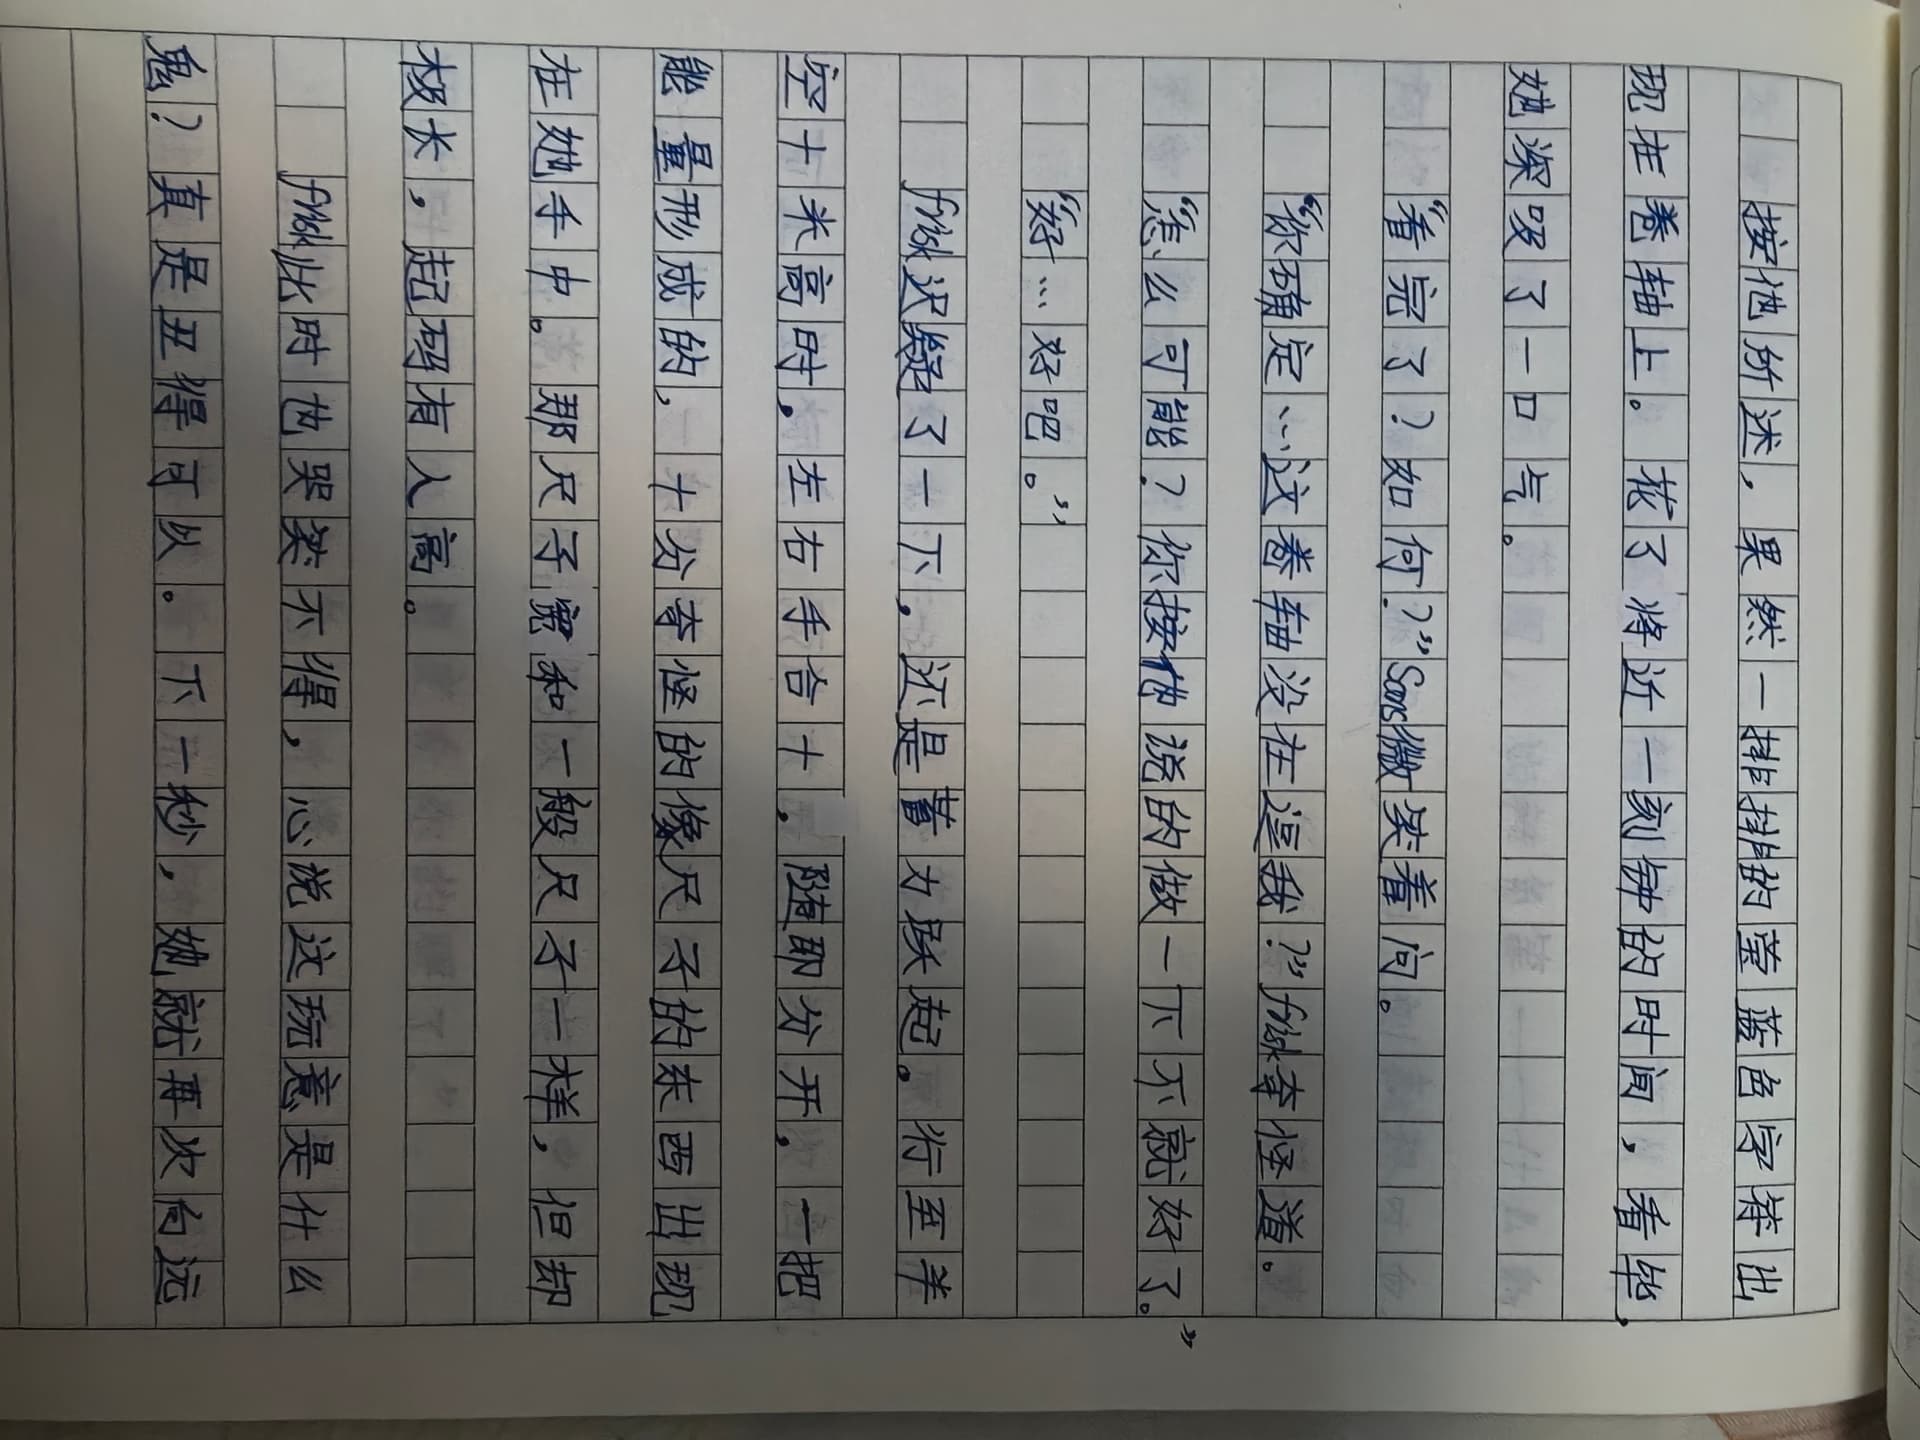 按他所述，果然一排排的莹蓝色字符出
现在卷轴上。花了将近一刻钟的时间，看毕，
她深吸了一口气。
“看完了？如何？”Sans微笑着问。
“你确定…这卷轴没在逗我？”frisk奇怪道。
“怎么可能？你按他说的做一下不就好了。”
“好…好吧。”
frisk迟疑了一下，还是蓄力跃起。行至半
空十米高时，左右手合十，随即分开，一把
能量形成的，十分奇怪的像尺子的东西出现
在她手中。那尺子宽和一般尺子一样，但却
极长，起码有人高。
frisk此时也哭笑不得，心说这玩意是什么
鬼？真是丑得可以。下一秒，她就再次向远